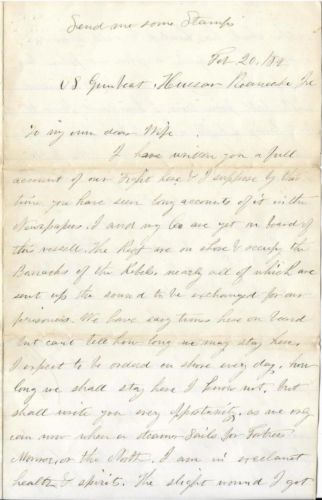 Send me some Stamps
Feb 20./62
US. Gunboat, Hussar Roanoake Ile
To my own dear Wife.
I have written you a full
account of our Fight here & I suppose by this
time you have seen long accounts of it in the
Newspapers. I and my Co are yet on board of
this vessell. The Regt are on shore & occupy the
Barracks of the Rebels nearly all of which are
sent up the sound to be exchanged for our
prisoners. We have easy times here on board
but cant tell how long we may stay here.
I expect to be ordered on shore every day, how
long we shall stay here I know not, but
shall write you every oppotunity, as we only
can now when a steamer Sails for Fortress
Monroe, or the North. I am in excelant
health & spirits. The slight wound I got